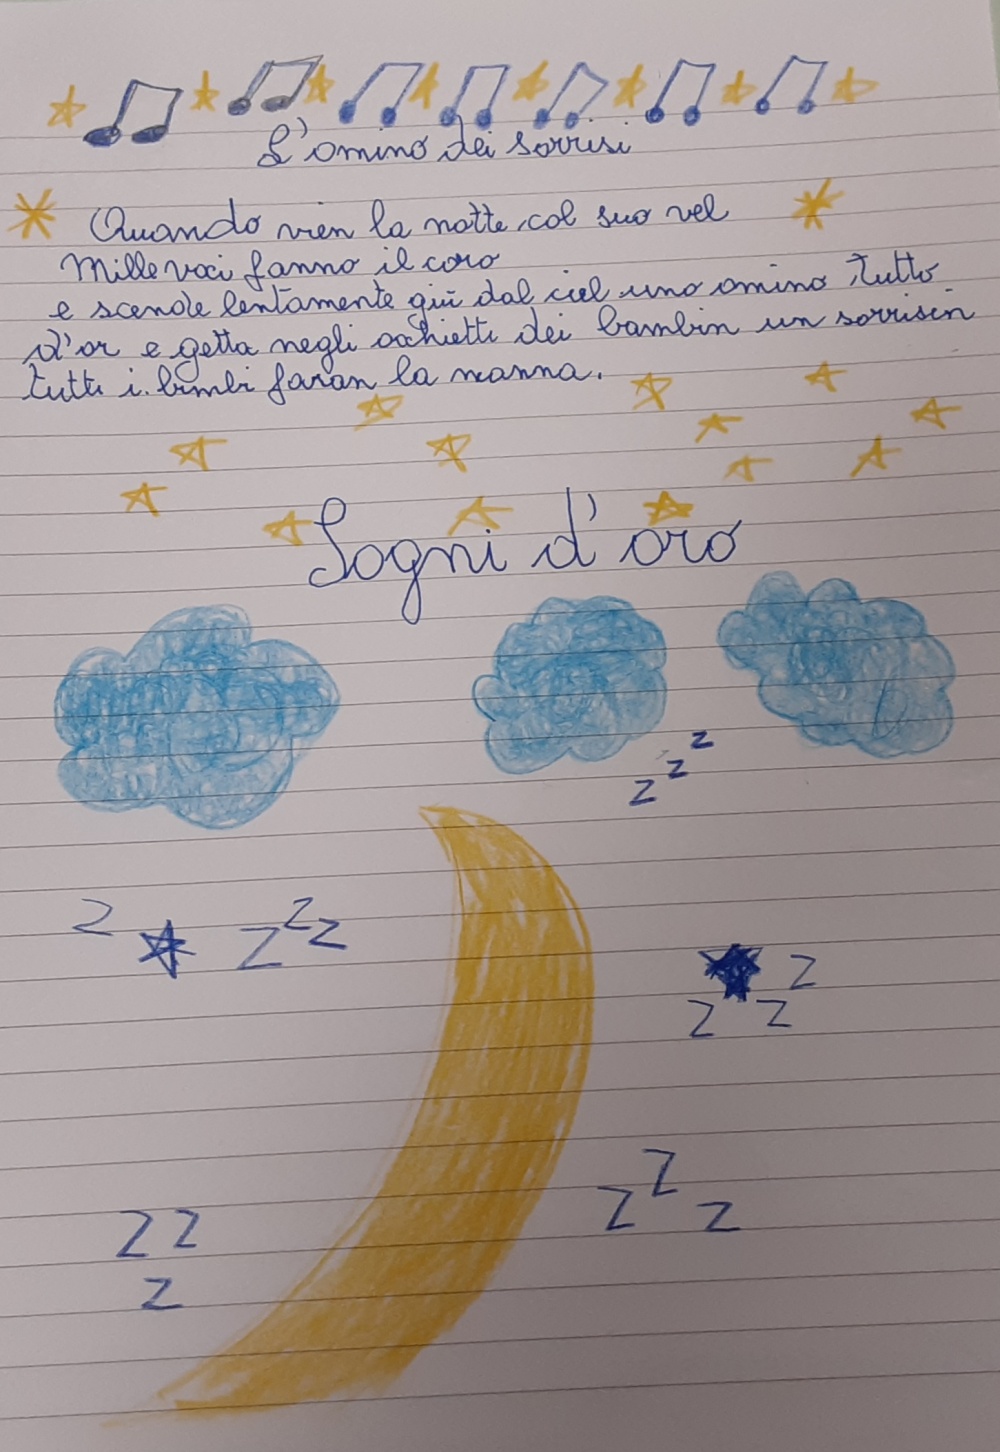 L'omino dei sorrisi
Quando vien la notte, col suo vel
Mille voci fanno il coro
e scende lentamente giù dal ciel uno omino tutto
d'or e getta negli occhietti dei bambin un sorrisin
tutti i bimbi faran la nanna.
Sogni d'oro
z
z
z
z z z z
z
z z
z
z z
z z
z